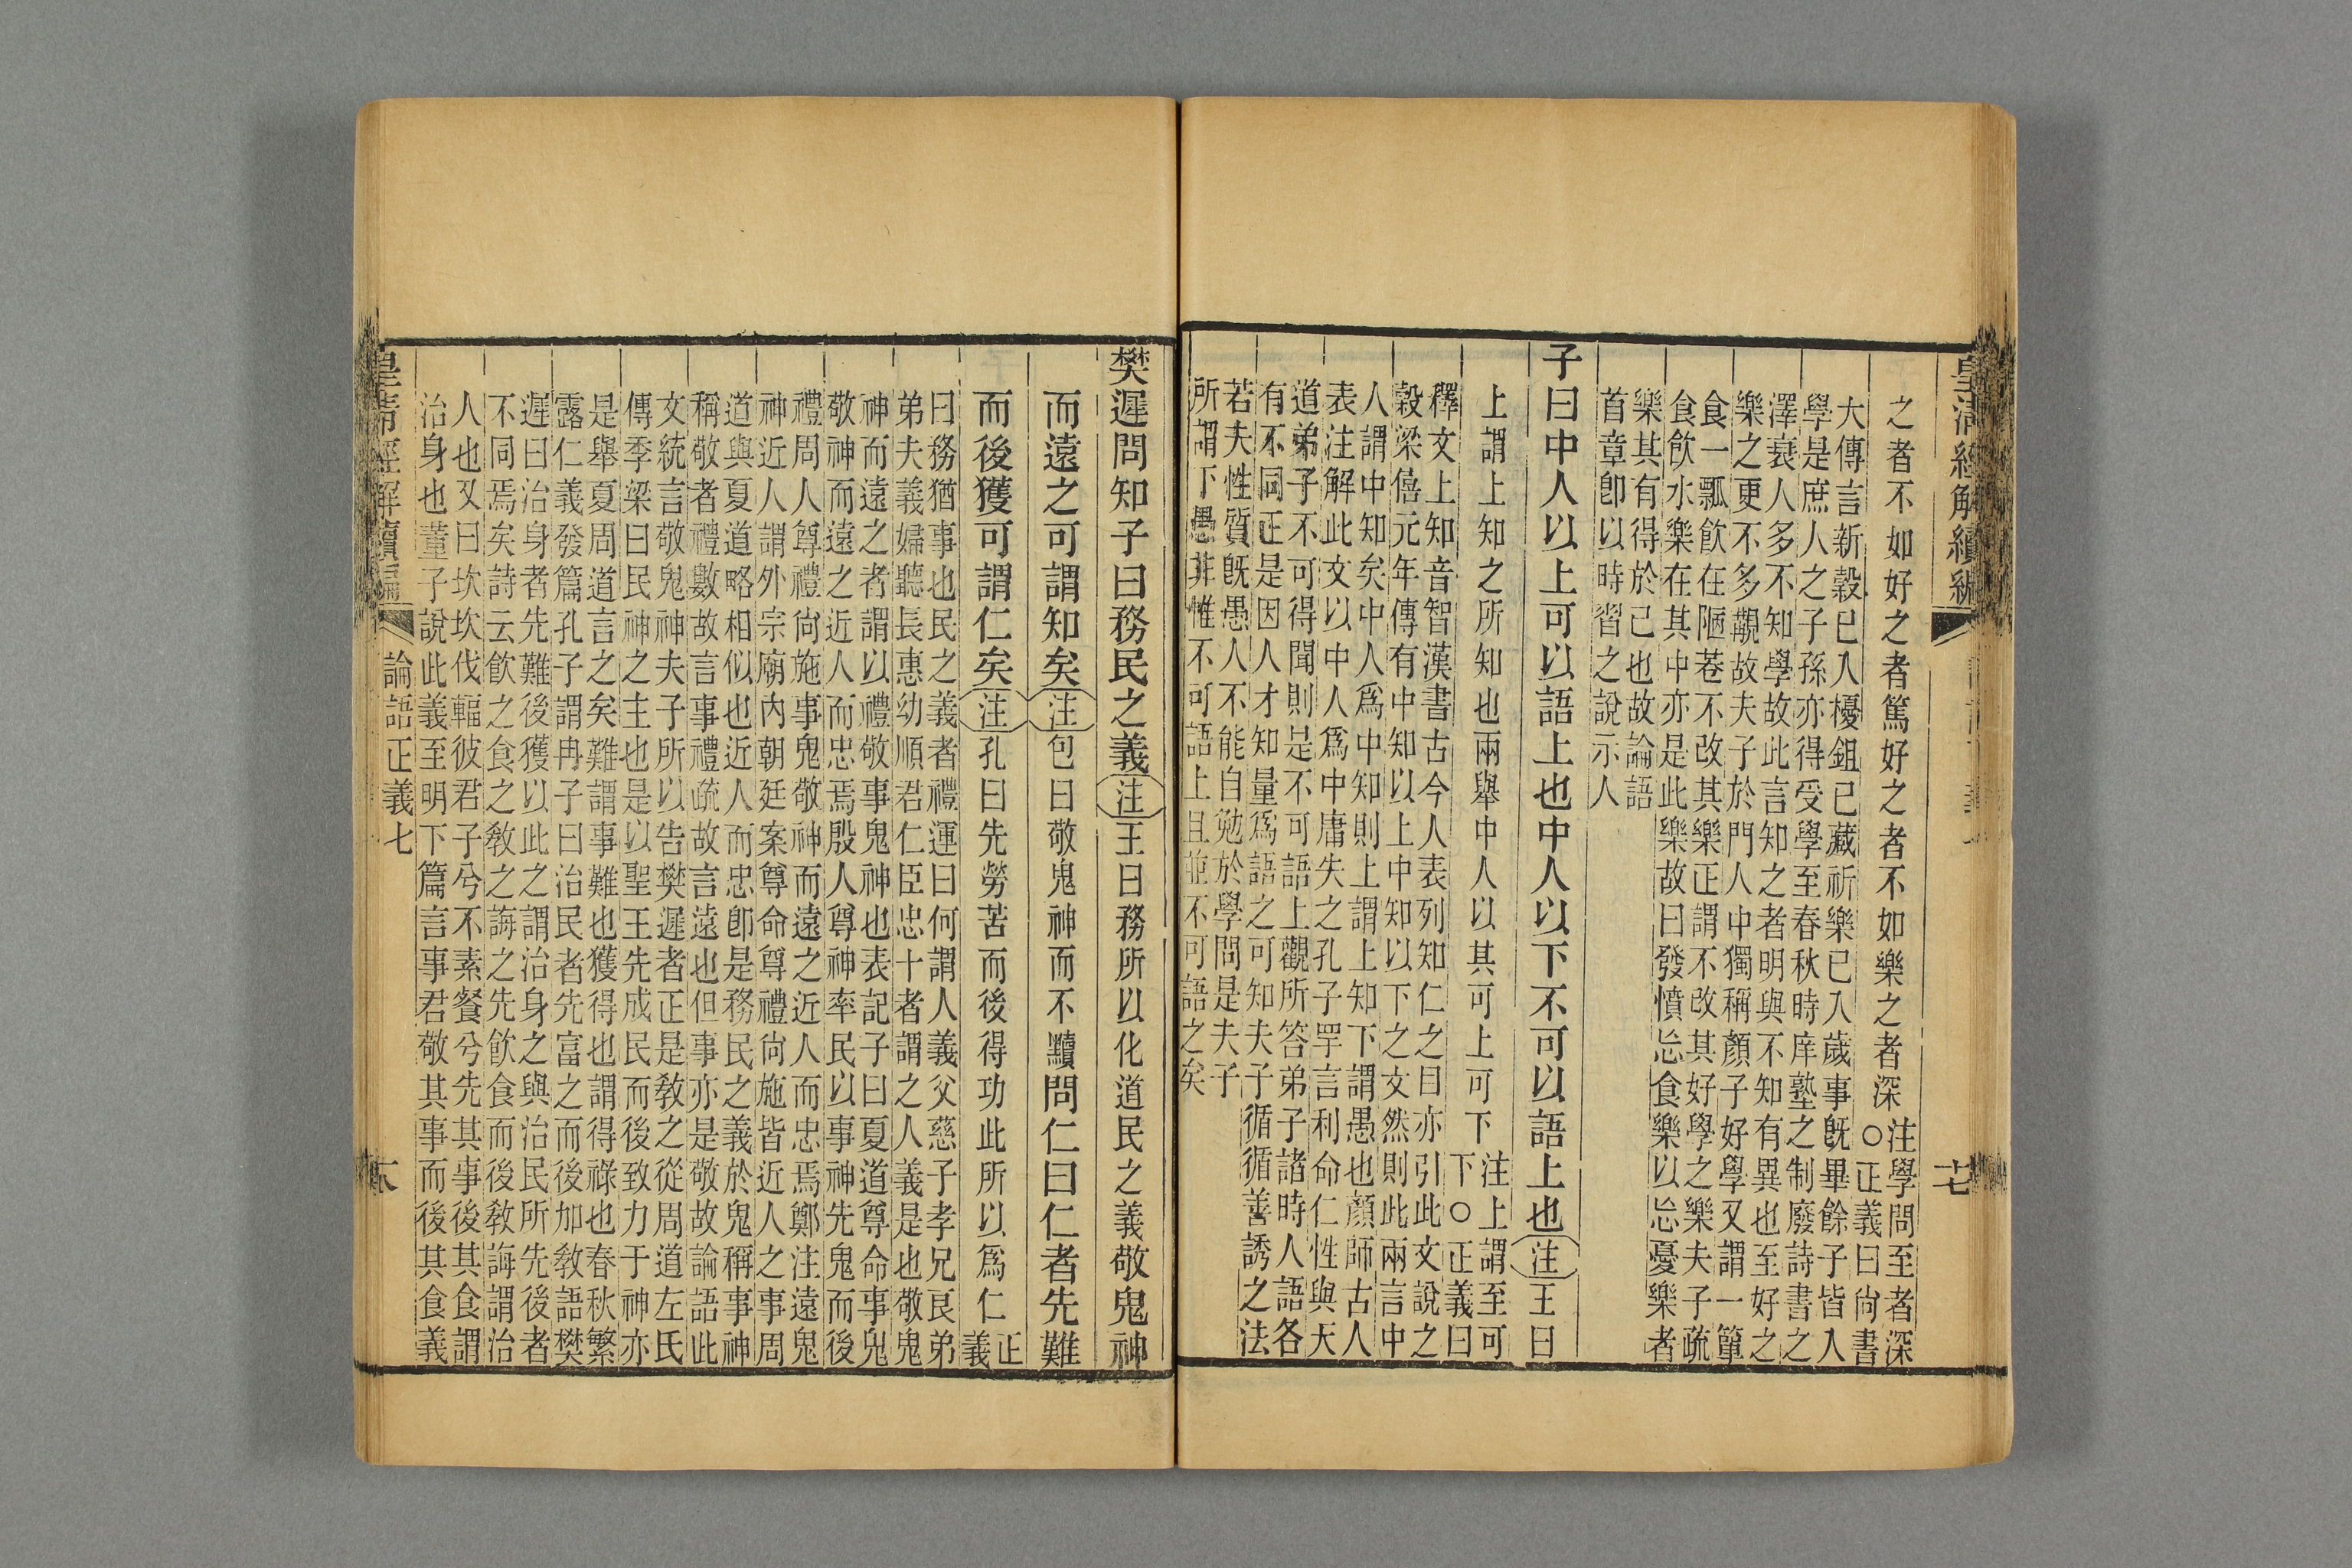 皇清經解續編
十七
之者不如好之者篤好之者不如樂之者深
注學問至者深
○正義曰尙書
大傳言新穀已入耰鉏已藏祈樂已入歲事旣畢餘子皆入
學是庶人之子孫亦得受學至春秋時庠塾之制廢詩書之
澤衰人多不知學故此言知之者明與不知有異也至好之
樂之更不多覯故夫子於門人中獨稱顏子好學又謂一簞
食一瓢飮在陋巷不改其樂正謂不改其好學之樂夫子疏
食飮水樂在其中亦是此樂故曰發憤忘食樂以忘憂樂者
樂其有得於己也故論語
首章卽以時習之說示人
子曰中人以上可以語上也中人以下不可以語上也注王曰
上謂上知之所知也兩舉中人以其可上可下
注上謂至可
下○正義曰
釋文上知音智漢書古今人表列知仁之目亦引此文說之
穀梁僖元年傳有中知以上中知以下之文然則此兩言中
人謂中知矣中人爲中知則上謂上知下謂愚也顏師古人
表注解此文以中人爲中庸失之孔子罕言利命仁性與天
道弟子不可得聞則是不可語上觀所答弟子諸時人語各
有不同正是因人才知量爲語之可知夫子循循善誘之法
若夫性質旣愚人不能自勉於學問是夫子
所謂下愚非惟不可語上且並不可語之矣
樊遲問知子曰務民之義注王曰務所以化道民之義敬鬼神
而遠之可謂知矣注包曰敬鬼神而不黷問仁曰仁者先難
而後獲可謂仁矣注孔曰先勞苦而後得功此所以爲仁
正
義
曰務猶事也民之義者禮運曰何謂人義父慈子孝兄良弟
弟夫義婦聽長惠幼順君仁臣忠十者謂之人義是也敬鬼
神而遠之者謂以禮敬事鬼神也表記子曰夏道尊命事鬼
敬神而遠之近人而忠焉殷人尊神率民以事神先鬼而後
禮周人尊禮尙施事鬼敬神而遠之近人而忠焉鄭注遠鬼
神近人謂外宗廟內朝廷案尊命尊禮尙施皆近人之事周
道與夏道略相似也近人而忠卽是務民之義於鬼稱事神
稱敬者禮數故言事禮疏故言遠也但事亦是敬故論語此
文統言敬鬼神夫子所以告樊遲者正是敎之從周道左氏
傳季梁曰民神之主也是以聖王先成民而後致力于神亦
是舉夏周道言之矣難謂事難也獲得也謂得祿也春秋繁
露仁義發篇孔子謂冉子曰治民者先富之而後加敎語樊
遲曰治身者先難後獲以此之謂治身之與治民所先後者
不同焉矣詩云飮之食之敎之誨之先飮食而後敎誨謂治
人也又曰坎坎伐輻彼君子兮不素餐兮先其事後其食謂
治身也董子說此義至明下篇言事君敬其事而後其食義
皇清經解續編
論語正義七